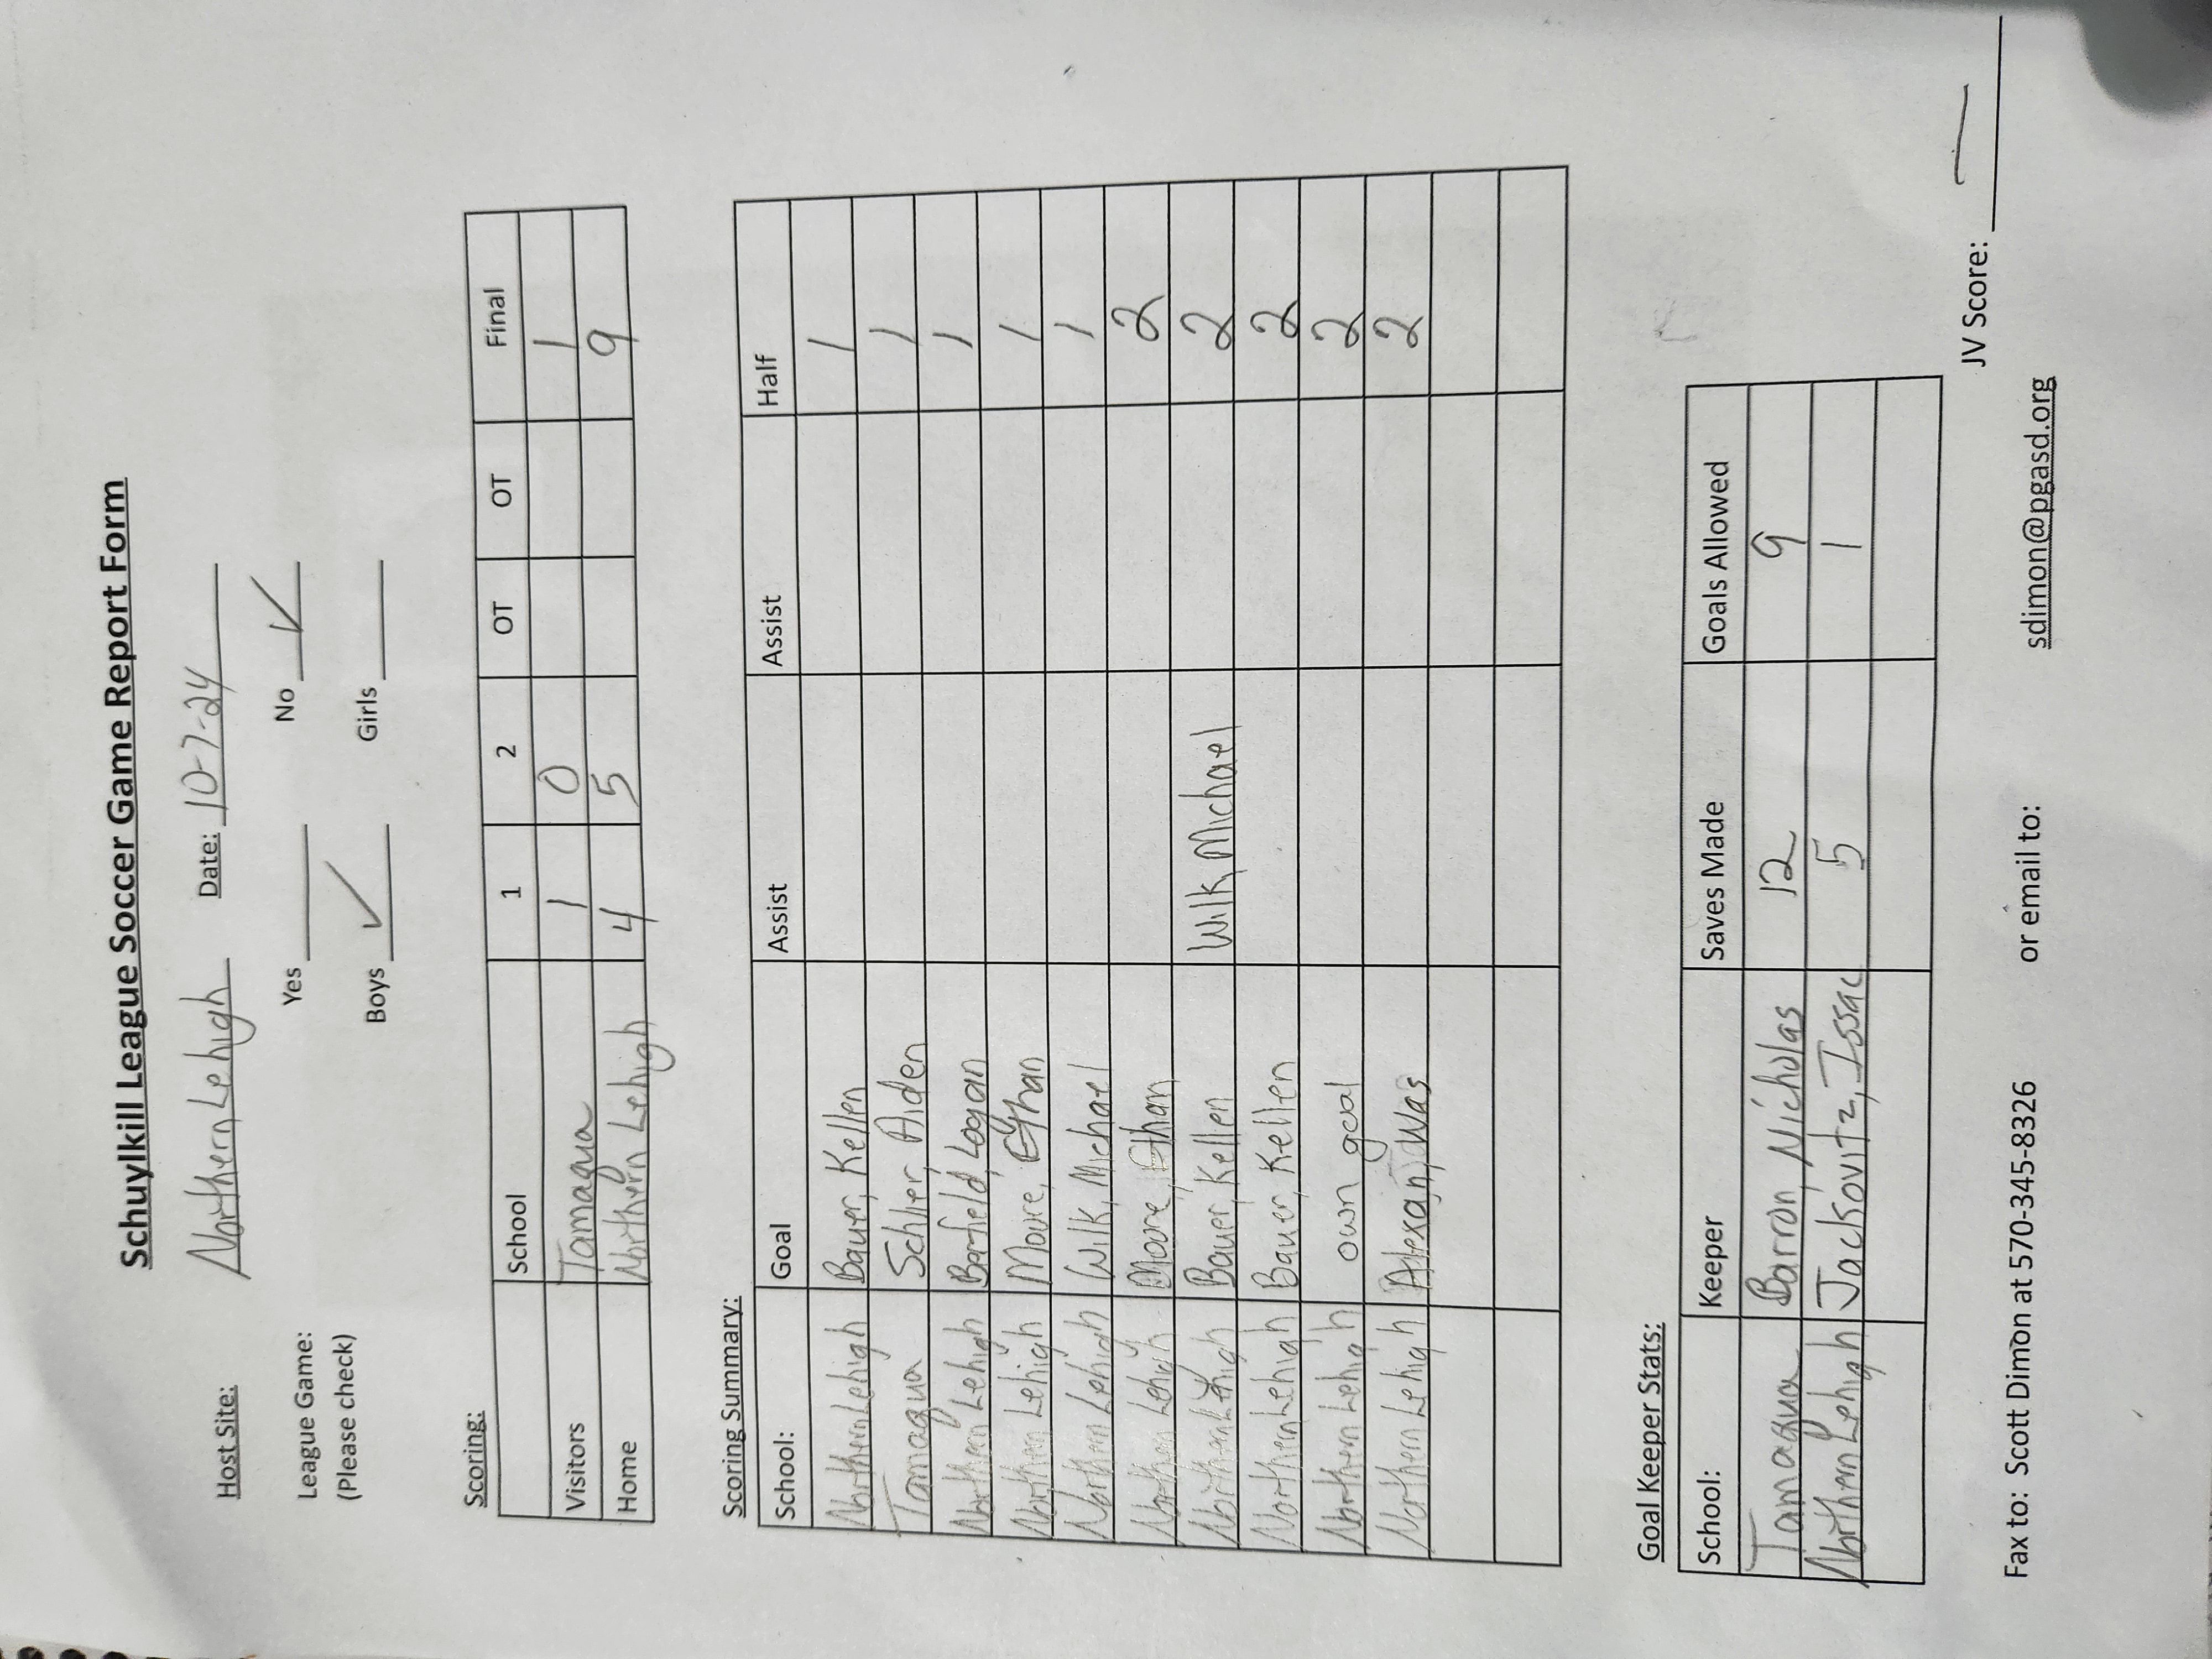 Schuylkill League Soccer Game Report Form
Host Site: Northern Lehigh Date: 10-7-24
League Game: Yes No ✓
(Please check) Boys ✓ Girls
Scoring:
School 1 2 OT OT Final
Visitors Tamaqua 1 0 1
Home Northern Lehigh 4 5 9
Scoring Summary:
School: Goal Assist Assist Half
Northern Lehigh Bauer, Kellen 1
Tamaqua Schlier, Aiden 1
Northern Lehigh Barfield, Logan 1
Northern Lehigh Moore, Ethan 1
Northern Lehigh Wilk, Michael 1
Northern Lehigh Moore, Ethan 2
Northern Lehigh Bauer, Kellen Wilk, Michael 2
Northern Lehigh Bauer, Kellen 2
Northern Lehigh own goal 2
Northern Lehigh 2
Goal Keeper Stats:
School: Keeper Saves Made Goals Allowed
Tamaqua Barron, Nicholas 12 9
Northern Lehigh Jackovitz, Issac 5 1
JV Score: —
Fax to: Scott Dimon at 570-345-8326 or email to: sdimon@pgasd.org